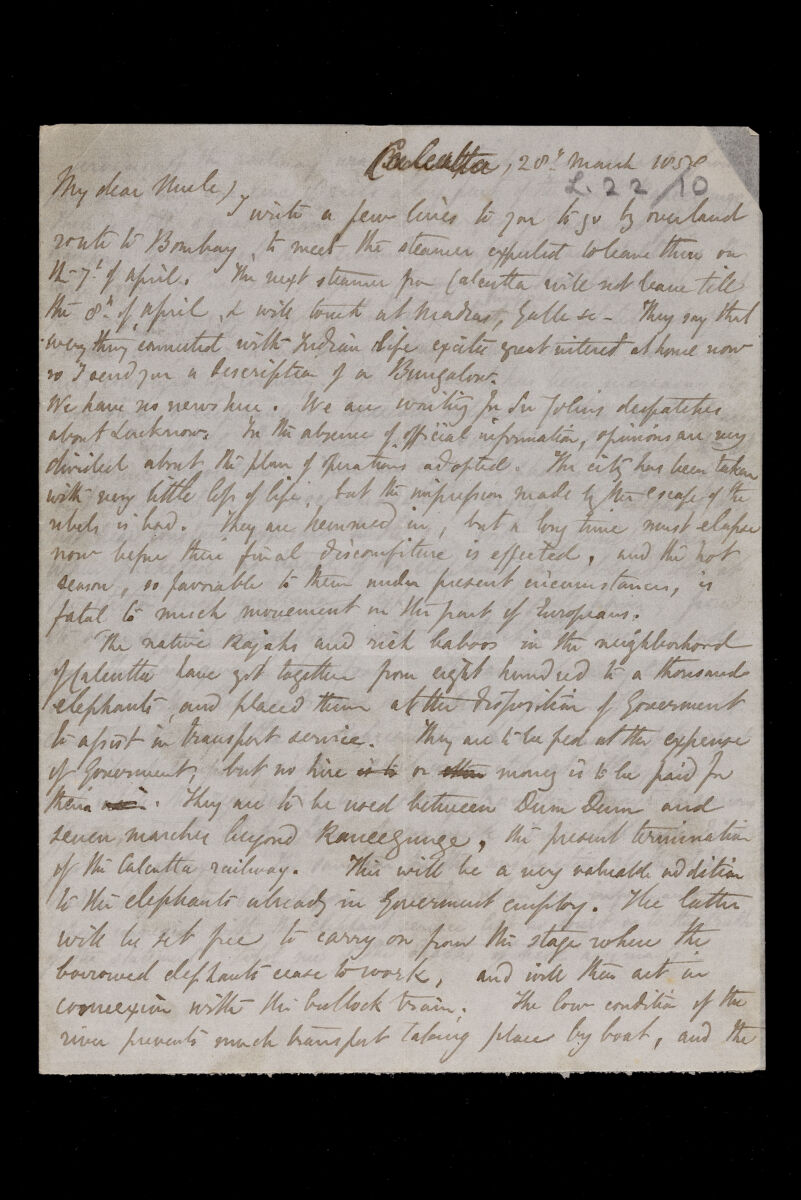 Calcutta, 28th March 1858
L. 22/10
My dear Uncle,
I write a few lines to you to go by overland
route to Bombay, to meet the steamer expected to leave there on
the 7th of April. The next steamer from Calcutta will not leave till
the 8th of April, & will touch at Madras, Galle &c - They say that
every thing connected with Indian life excites great interest at home now
so I send you a description of a Bungalow.
We have no news here. We are waiting for Sir Colins despatches
about Lucknow. In the absence of official information, opinions are very
divided about the plan of operations adopted. The city has been taken
with very little loss of life, but the impression made by the escape of the
rebels is bad. They are hemmed in, but a long time must elapse
now before their final discomfiture is effected, and the hot
season, so favorable to them under present circumstances, is
fatal to much movement on the part of Europeans.
The native Rajahs and rich baboos in the neighborhood
of Calcutta have got together from eight hundred to a thousand
elephants, and placed them at the disposition of Goverment
to assist in transport service. They are to be fed at the expense
of Goverment, but no hire is to or other money is to be paid for
them. They are to be used between Dum Dum and
seven marches beyond Raneegunge, the present termination
of the Calcutta railway. This will be a very valuable addition
to the elephants already in Goverment employ. The latter
will be set free to carry on from the stage where the
borrowed elephants cease to work, and will then act in
connexion with the bullock train. The low condition of the
river prevents much transport taking place by boat, and the